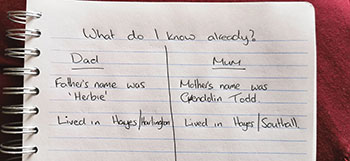 What do I know already?
Dad
Father's name was
'Herbie'
Lived in Hayes/Harlington
Mum
Mother's name was
Gwendolin Todd.
Lived in Hayes/Southall.